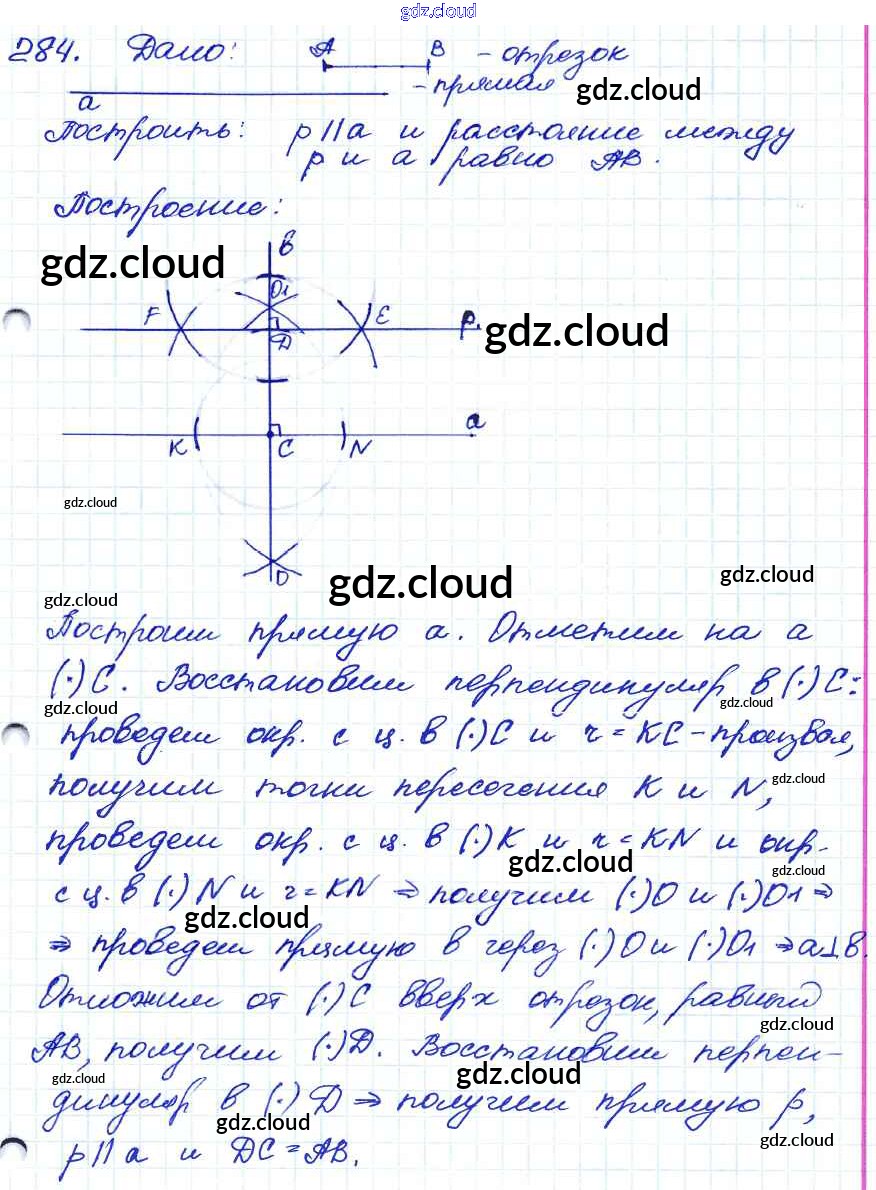 gdz.cloud
284. Дано: A B - отрезок
a - прямая gdz.cloud
Построить: p || a и расстояние между
p и a равно AB.
Построение:
gdz.cloud
в
O₁
F E p gdz.cloud
D
a
K C N
gdz.cloud
O
gdz.cloud gdz.cloud
gdz.cloud
Построим прямую a. Отметим на a
(·)C. Восстановим перпендикуляр в (·)C:
gdz.cloud gdz.cloud
проведем окр. с ц. в (·)C и r = KC - произвол,
получим точки пересечения K и N,
gdz.cloud
проведем окр. с ц. в (·)K и r = KN и окр.
gdz.cloud gdz.cloud
с ц. в (·)N и r = KN ⇒ получим (·)O и (·)O₁ ⇒
gdz.cloud
⇒ проведем прямую в через (·)O и (·)O₁ ⇒ a⊥в.
Отложим от (·)C вверх отрезок, равный
gdz.cloud
AB, получим (·)D. Восстановим перпен-
gdz.cloud gdz.cloud
дикуляр в (·)D ⇒ получим прямую p,
gdz.cloud gdz.cloud
p || a и DC = AB.